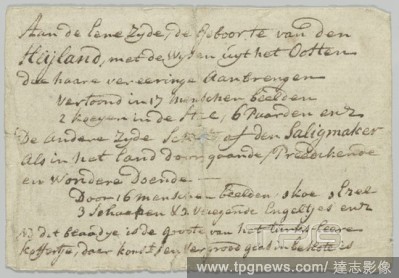 Aan de Eene Zyde, de Geboorte van den
Heijland, met de Wysen uyt het Oosten
die haare vereeringe Aanbrengen
Vertoond in 17 menschen beelden
2 koeyen in de 6 Paarden enz
De andere Zyde of den Saligmaker
Als in het Land Doorgaande, Predeckende
en Wondere Doende
Door 16 menschen beelden 1 koe 1 Ezel
3 Schaapen & 3 vliegende Engeltjes enz
dit is de groote van het
koffertje, daar konst en vergrood glas in is
www.tpgnews.com/
達志影像